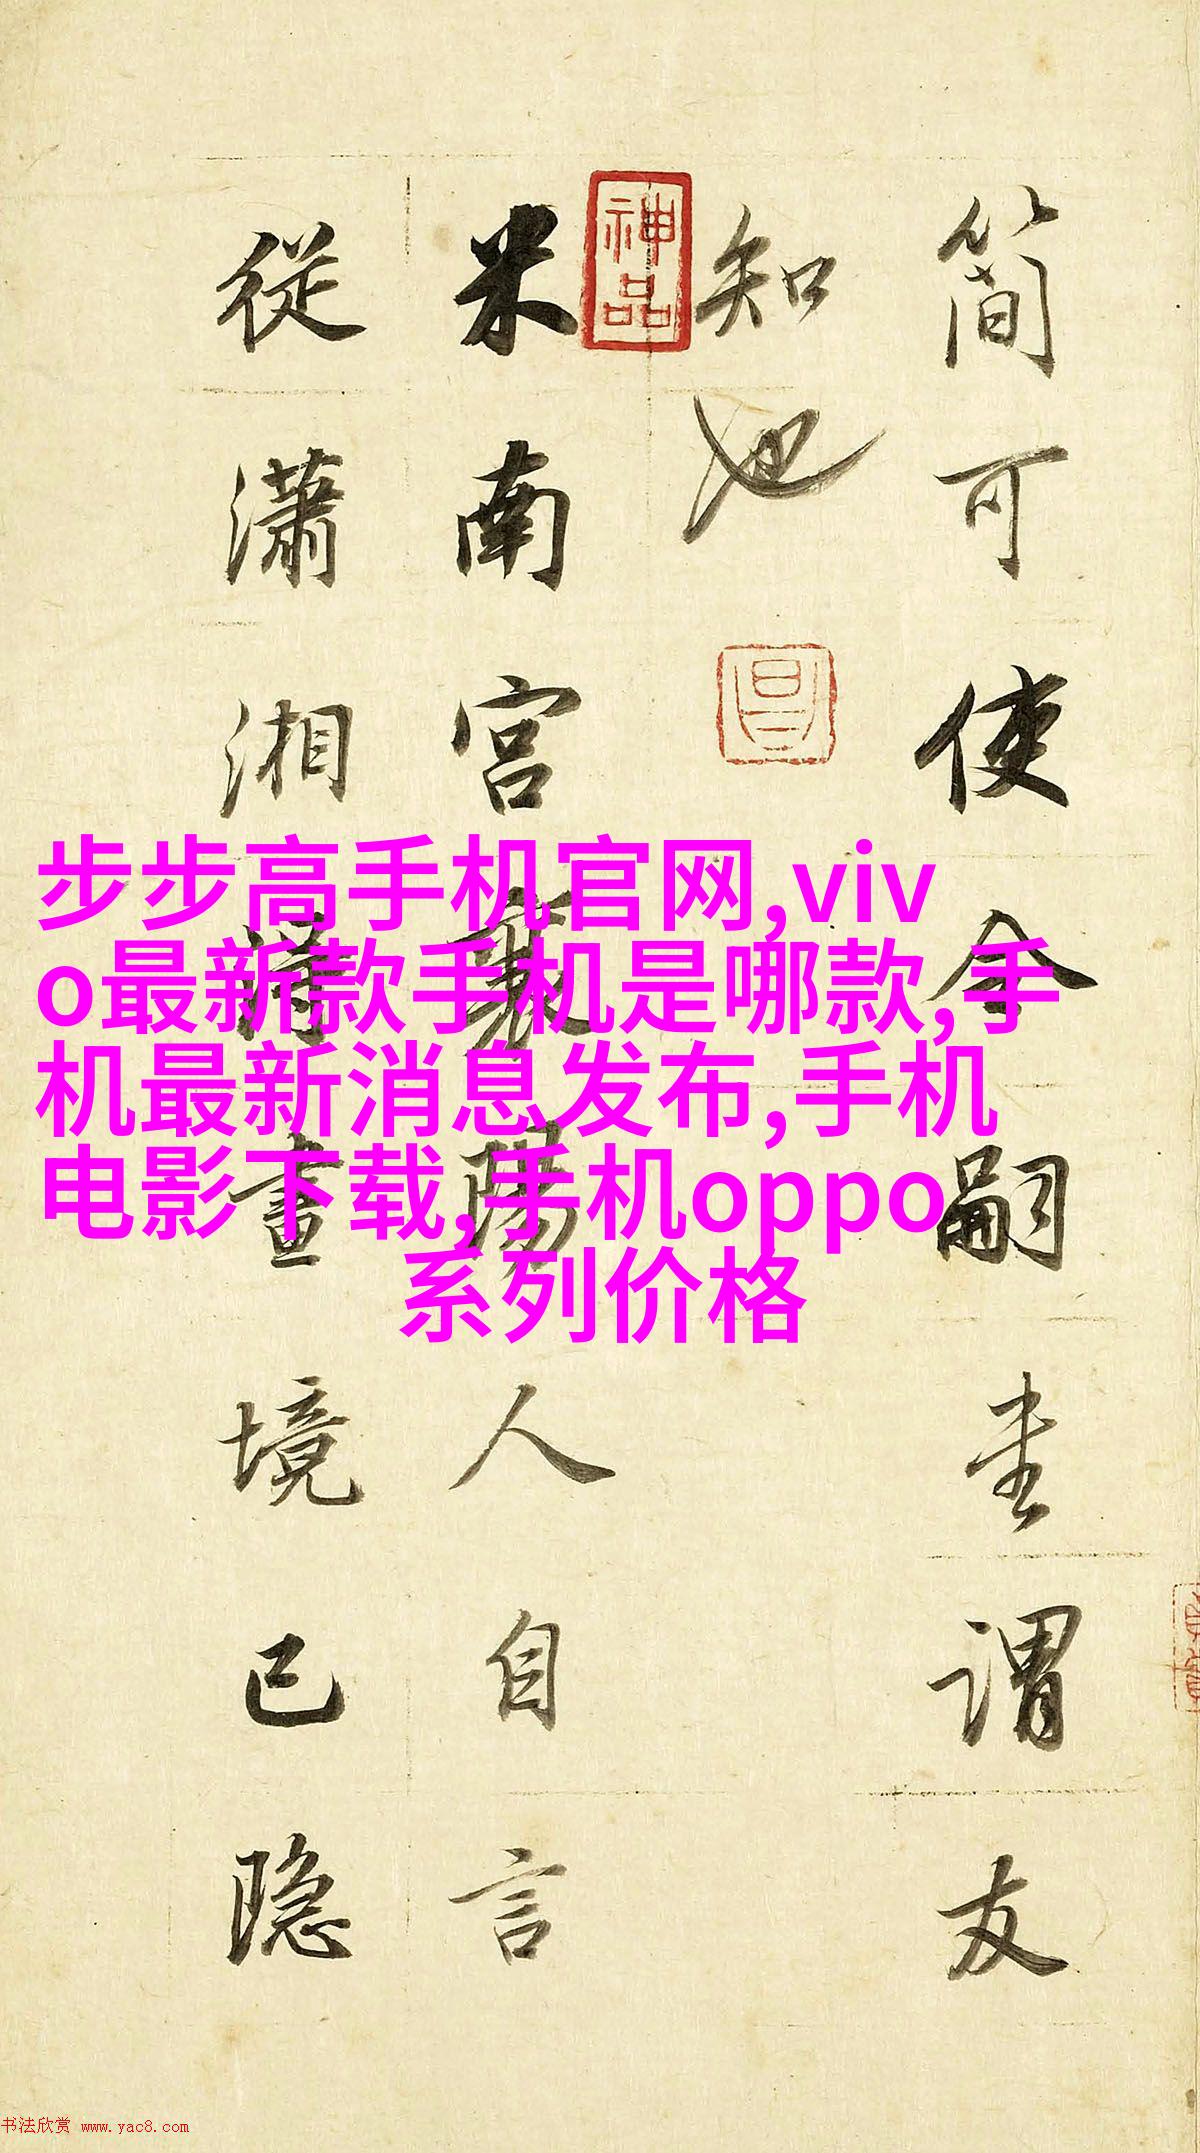 簡可使令嗣謂友
知也
神品
米南宮襄陽人自言
從瀟湘得畫境已隱
步步高手机官网,viv
o最新款手机是哪款,手
机最新消息发布,手机
电影下载,手机oppo
系列价格
书法欣赏 www.yac8.com